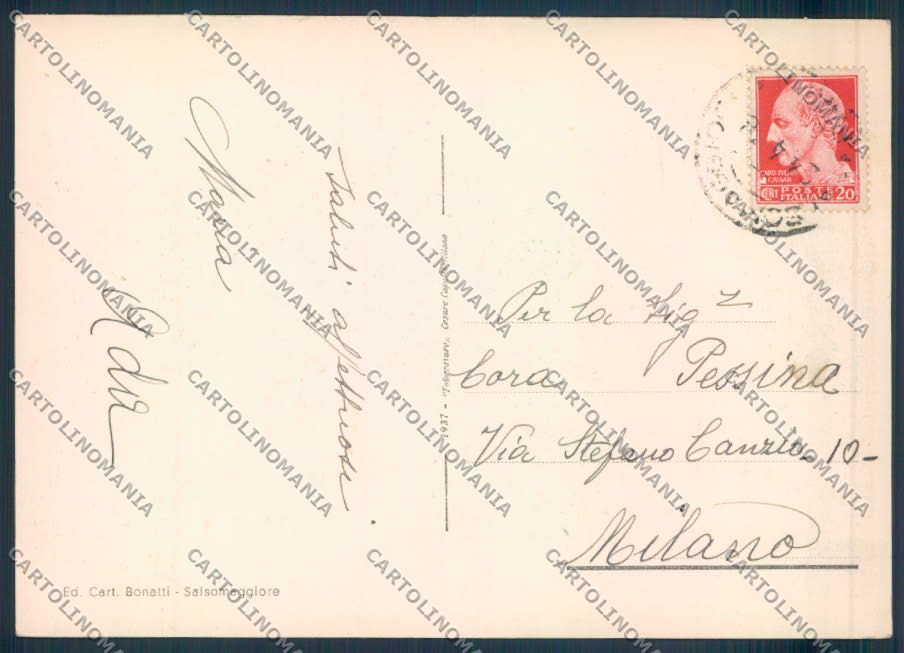 Saluti affettuosi
Maria
Ada
Ed. Cart. Bonatti - Salsomaggiore
1937 - "Fotogravure" Cesare Capello Milano
CAIVS IVLIVS
CAESAR
CENT POSTE
ITALIANE 20
Per la Sig.
Cora Pessina
Via Stefano Canzio 10-
Milano
CARTOLINOMANIA